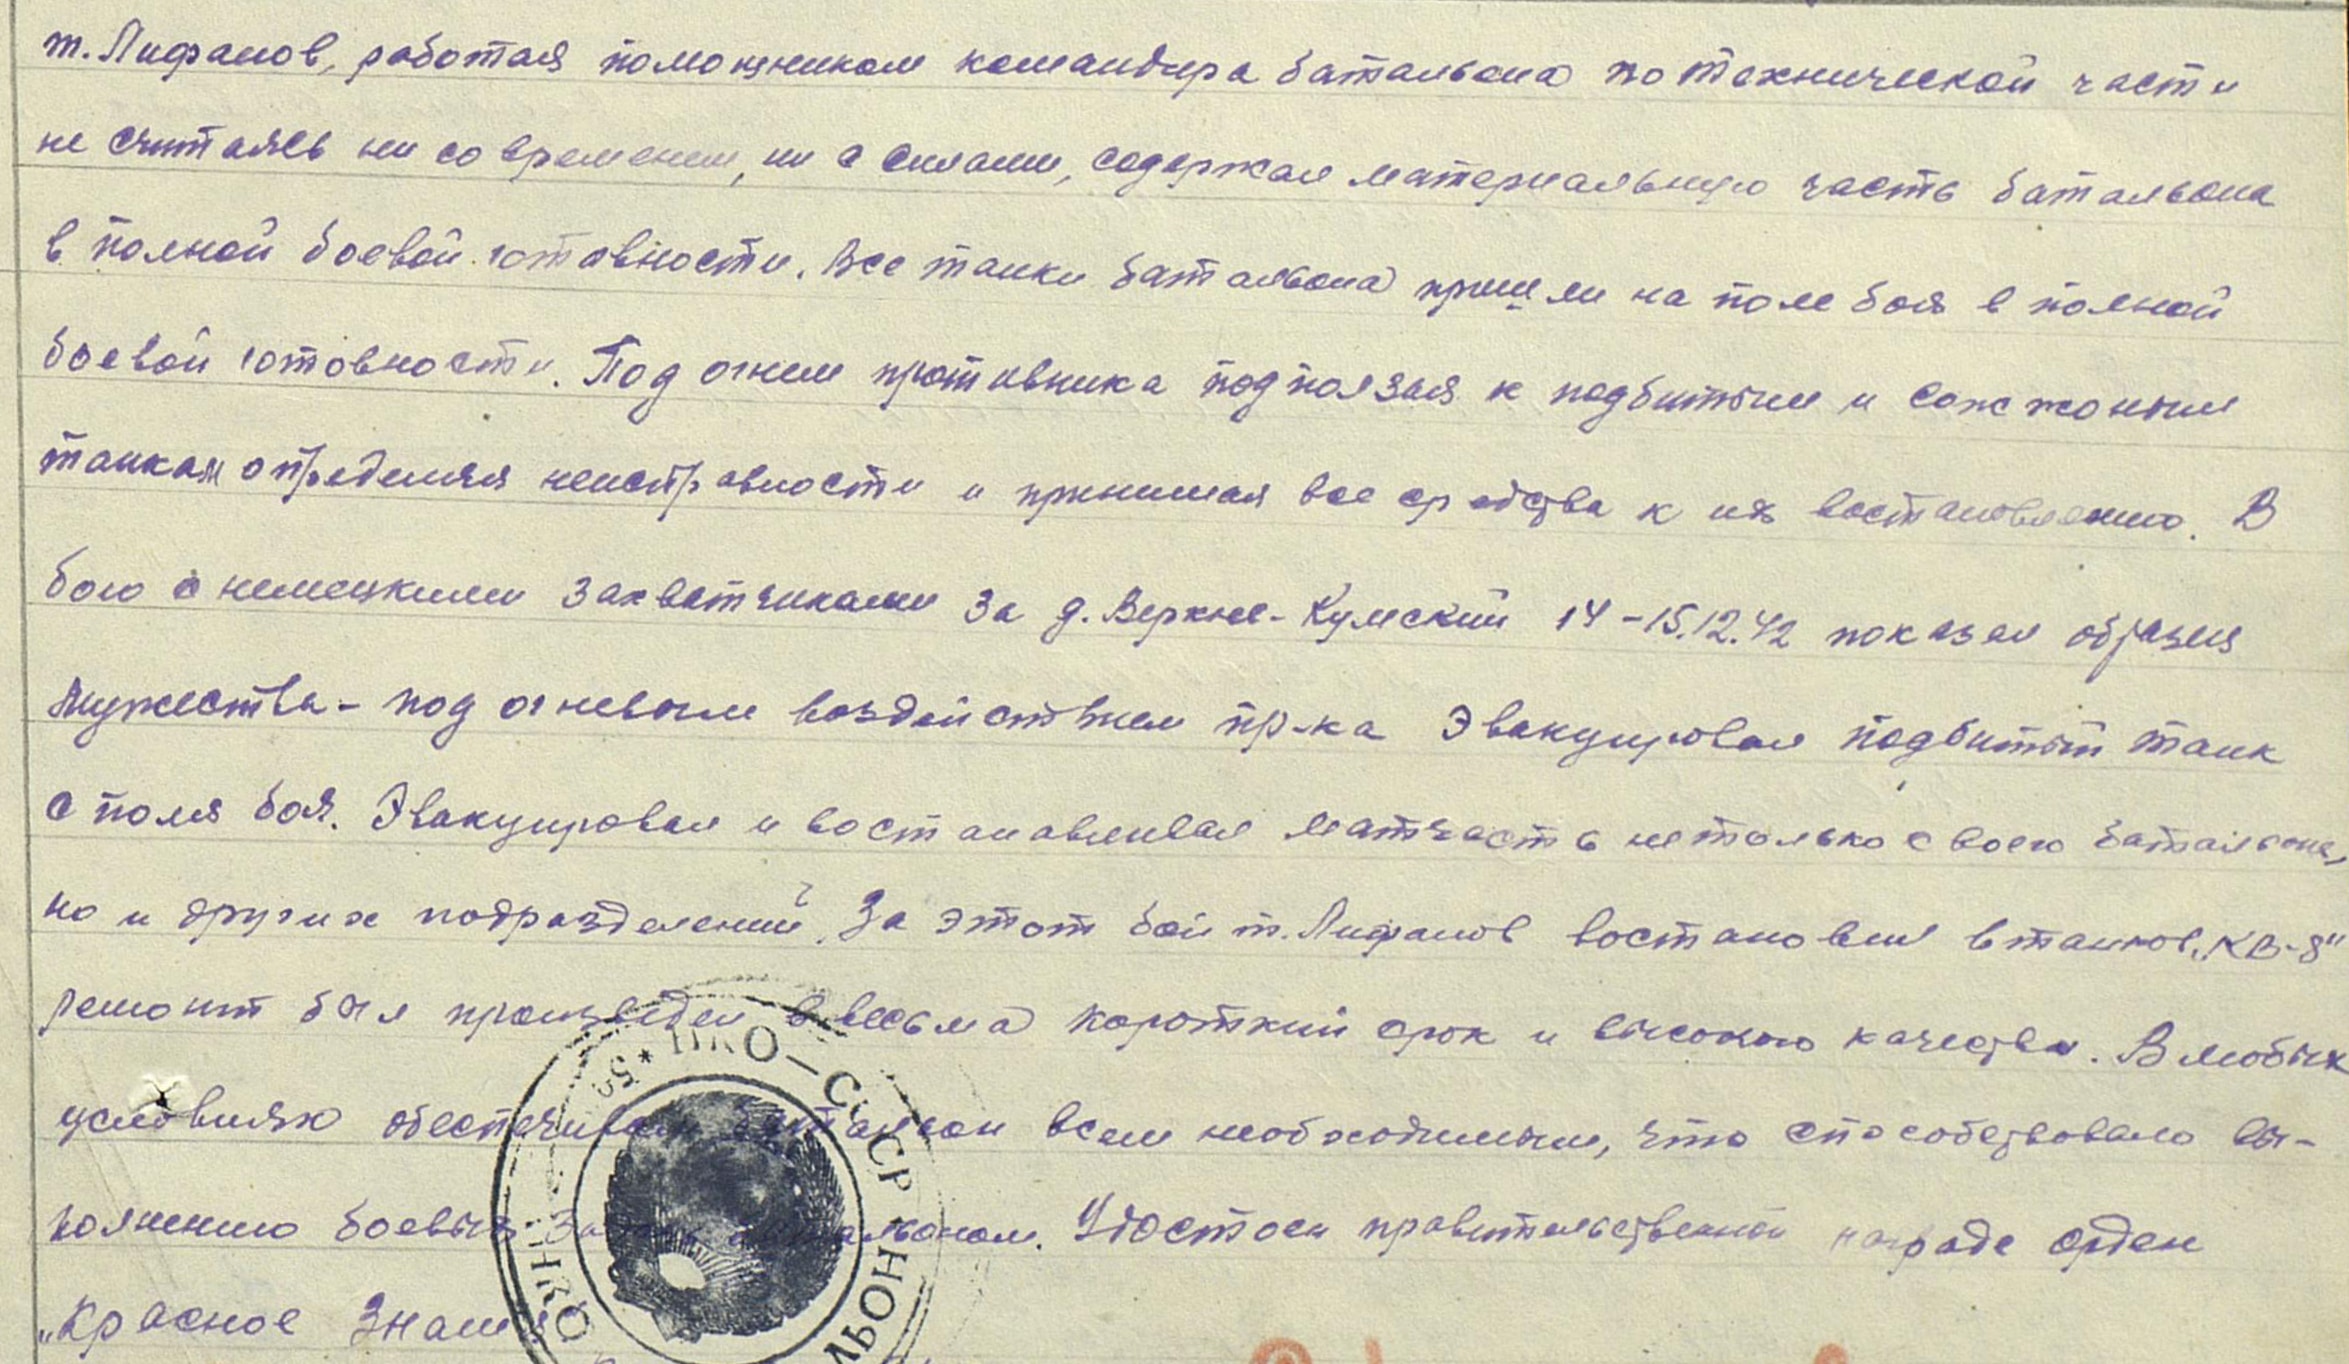 т. Лифанов, работая помощником командира батальона по технической части
не считаясь ни со временем, ни с силами, содержал материальную часть батальона
в полной боевой готовности. Все танки батальона пришли на поле боя в полной
боевой готовности. Под огнем противника подползал к подбитым и сожженым
танкам определяя неисправности и принимая все средства к их востановлению. В
бою с немецкими захватчиками за д. Верхне-Кумский 14-15.12.42 показал образец
мужества - под огневым воздействием пр-ка эвакуировал подбитый танк
с поля боя. Эвакуировал и востанавливал матчасть не только своего батальона,
но и других подразделений. За этот бой т. Лифанов востановил танков „КВ-8"
ремонт был произведен в весьма короткий срок и высокого качества. В любых
условиях обеспечивал батальон всем необходимым, что способствовало вы-
полнению боевых задач батальоном. Удостоен правительственной награде орден
„Красное Знамя
НКО-СССР